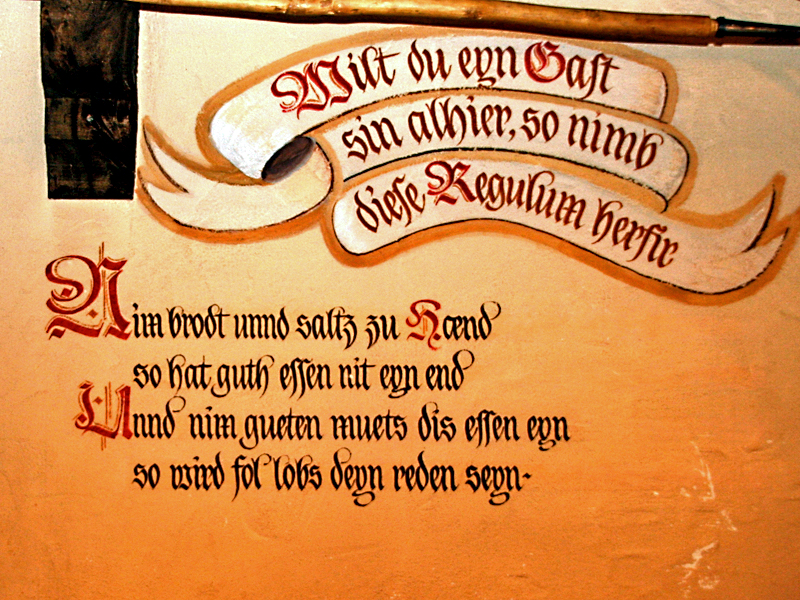 Wilt du eyn Gast
sin alhier, so nimb
diese Regulum herfir
Nim brodt unnd saltz zu Hænd
so hat guth essen nit eyn end
Unnd nim gueten muets dis essen eyn
so wird fol lobs deyn reden seyn-